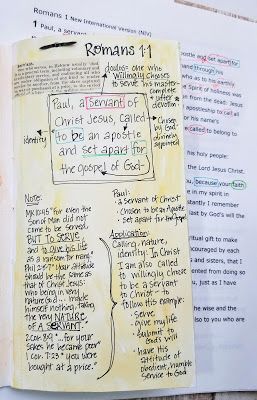 Romans 1 New International Version (NIV)
1 Paul, a servant
Romans 1:1
doulos = one who
willingly chooses
to serve his master-
complete
& utter
devotion
Paul, a servant of
Christ Jesus, called
to be an apostle
and set apart for
the gospel of God-
identity
Chosen
by God-
divinely
appointed
Note:
MK 10:45 "for even the
Son of Man did not
come to be served,
BUT TO SERVE
and to give his life
as a ransom for many."
Phil 2:5-7 "Your attitude
should be the same as
that of Christ Jesus:
who being in very
nature God... made
himself nothing, taking
the very NATURE
OF A SERVANT.
2 Cor 8:9 "...for your
sakes he became poor"
1 Cor. 7:23 "you were
bought at a price."
Paul:
a servant of Christ
Chosen to be an Apostle
set apart for the gospel
Application:
Calling, nature,
identity: In Christ
I am also called
to willingly choose
to be a servant
to Christ - to
follow His example:
- serve
- give my life
- submit to
God's will
- have His
attitude of
obedient, humble
service to God
postle and set apart for
and through his
who as to his earthly
e Spirit of holiness was
on from the dead: Jesus
apostleship to call all
or his name's
e called to belong to
his holy people:
the Lord Jesus Christ.
ou, because your faith
my spirit in
nstantly I remember
last by God's will the
iritual gift to make
couraged by each
and sisters, that I
ented from doing so
ou, just as I have
the wise and the
l also to you who are